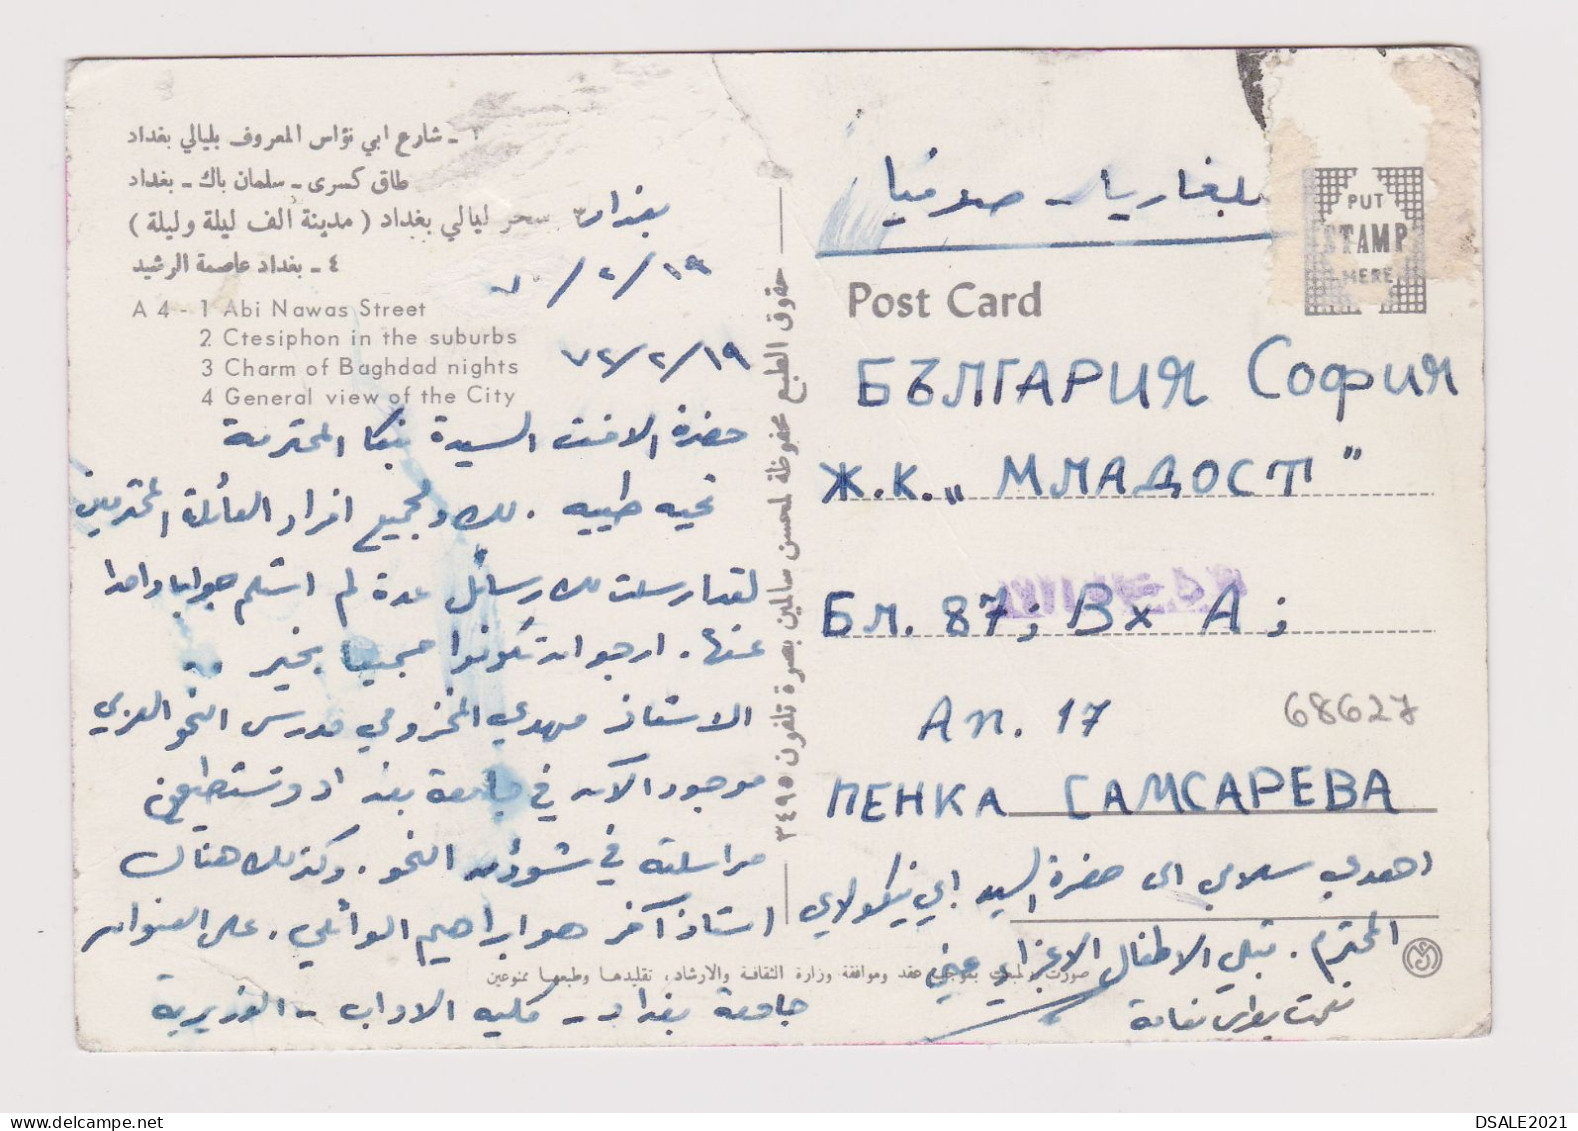 ١ - شارع ابي نؤاس المعروف بليالي بغداد
طاق كسرى - سلمان باك - بغداد
٣ سحر ليالي بغداد ( مدينة ألف ليلة وليلة )
٤ - بغداد عاصمة الرشيد
A 4 - 1 Abi Nawas Street
2 Ctesiphon in the suburbs
3 Charm of Baghdad nights
4 General view of the City
بغداد
١٩/٢/٧٠
١٩/٢/٧٢
حضرة الاخت السيدة بنكا المحترمة
تحيه طيبه . لك ولجميع افراد العائلة المحترمين
لقد ارسلت لك رسائل عدة لم استلم جوابا واحدا
عنها . ارجو ان تكونوا جميعا بخير ..
الاستاذ مهدي المخزومي مدرس النحو العربي
موجود الآن في جامعة بغداد وتستطيعين
مراسلته في شؤون النحو . وكذلك هناك
استاذ آخر هو ابراهيم الوائلي . على العنوان
جامعة بغداد - كليه الاداب - الوزيرية
حقوق الطبع محفوظة لمحسن سالمين بصرة تلفون ٣٤٩٥
بلغاريا - صوفيا
PUT
STAMP
HERE
Post Card
БЪЛГАРИЯ София
Ж.К. „ МЛАДОСТ "
Бл. 87; Вх А;
Ап. 17
68627
ПЕНКА САМСАРЕВА
اهدي سلامي الى حضرة السيد ابي نيكولاي
المحترم . قبلي الاطفال الاعزاء عني
صورت وطبعت بموجب عقد وموافقة وزارة الثقافة والارشاد، تقليدها وطبعها ممنوعين
DSALE2021